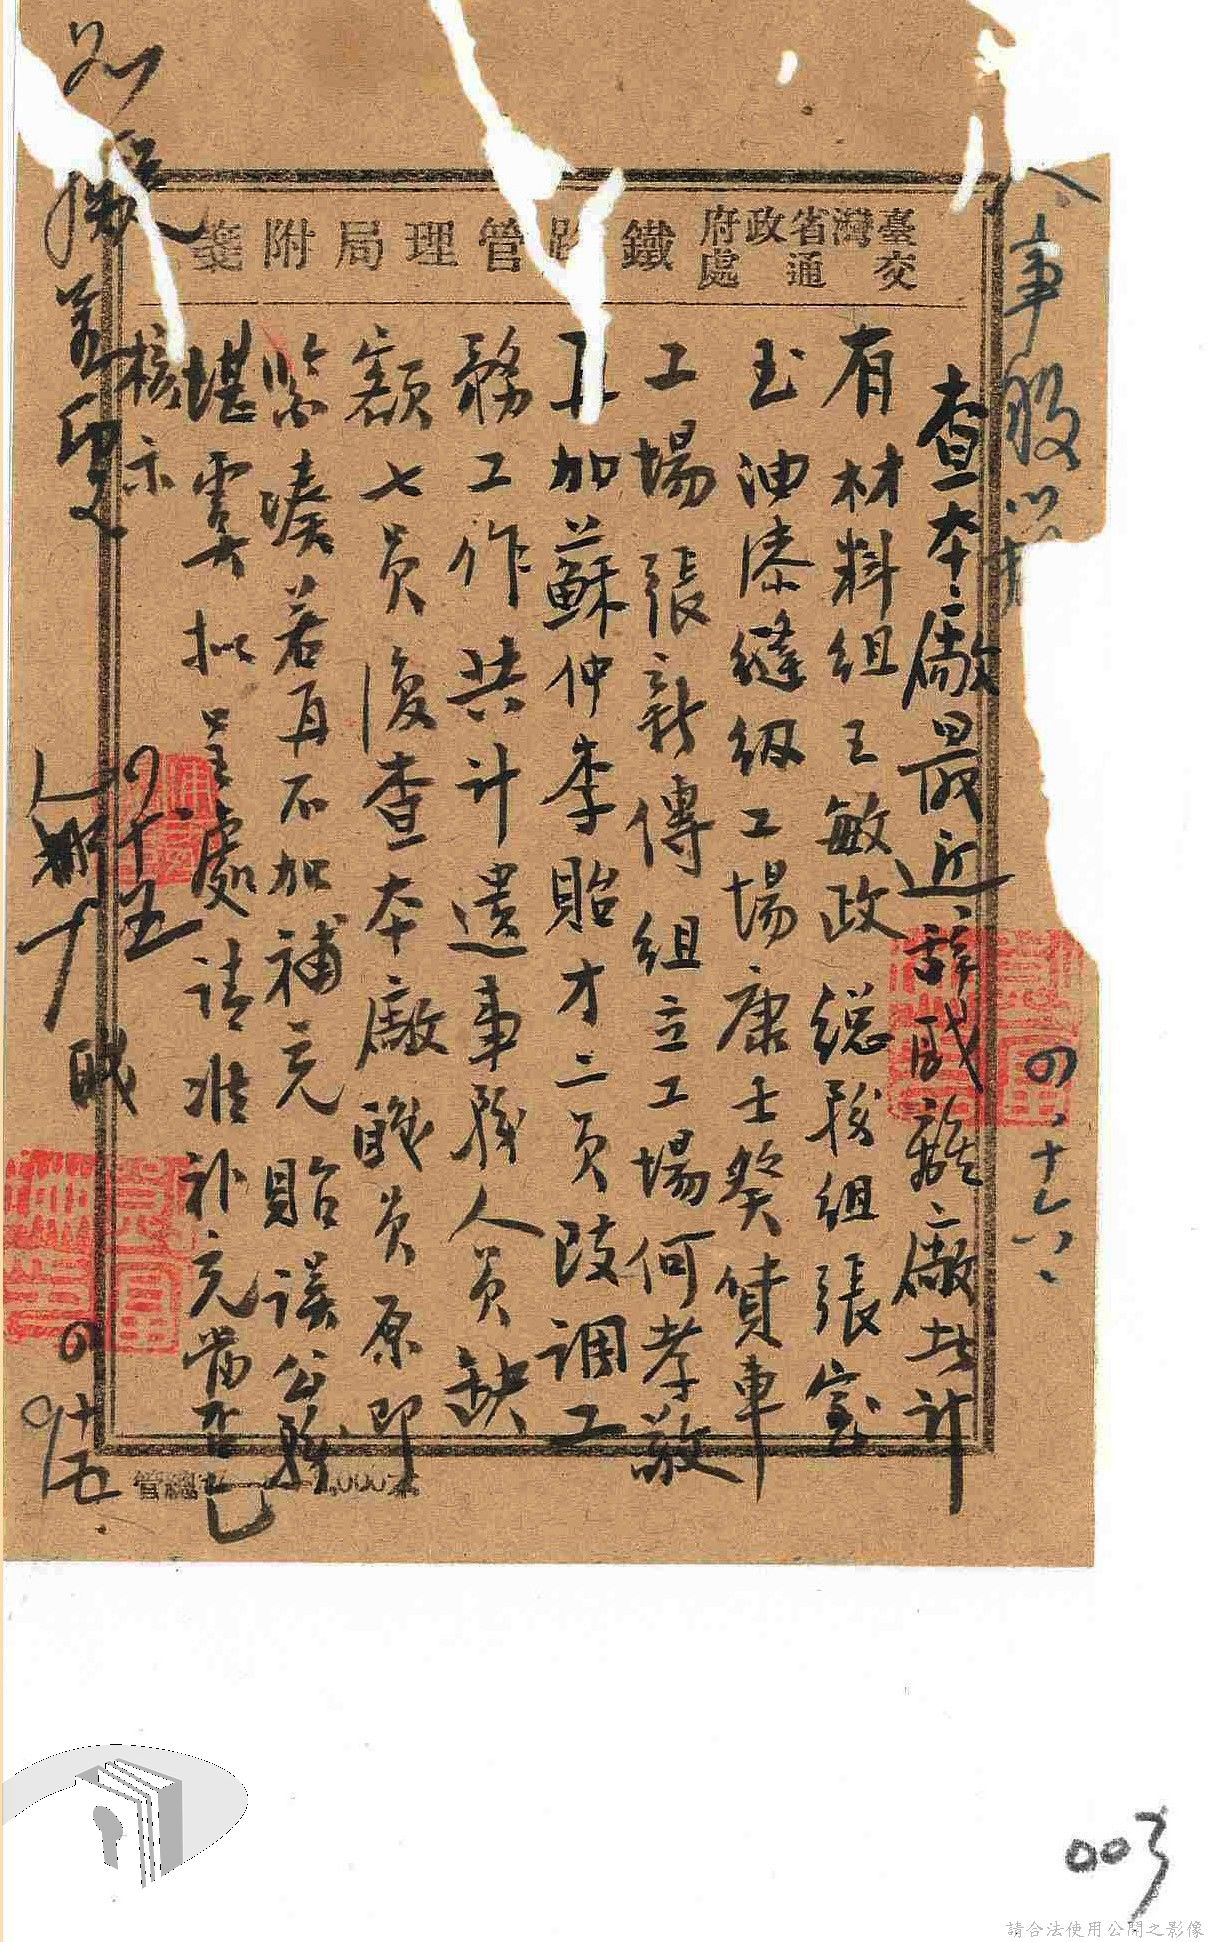 臺灣省政府
交通處
鐵路管理局附箋
人事股
四、十六、
查本廠最近辭職離廠共計
有材料組王敏政總務組張室
玉油漆縫級工場康士癸貨車
工場張新傳組立工場何孝敬
再加蘇仲李貽才二員改調工
務工作共計遺事務人員缺
額七員復查本廠職員原即
緊湊若再不加補充貽誤公務
堪虞擬呈處請准補充當否乞
核示
四、十五
職
四
十五
管總
003
請合法使用公開之影像